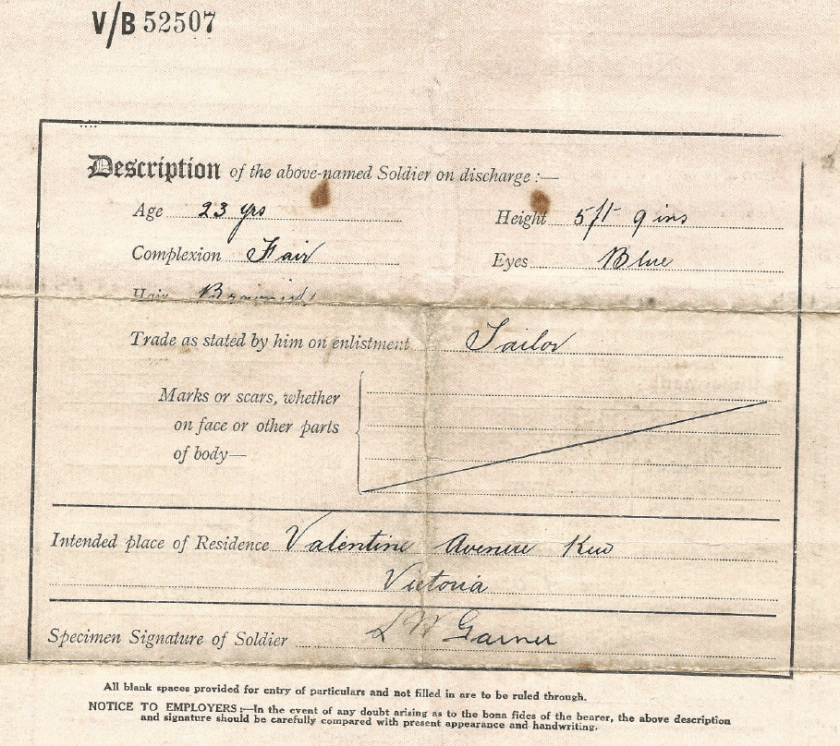 V/B 52507
Description of the above-named Soldier on discharge :—
Age 23 yrs Height 5ft 9 ins
Complexion Fair Eyes Blue
Hair Brownish
Trade as stated by him on enlistment Tailor
Marks or scars, whether
on face or other parts
of body—
Intended place of Residence Valentine Avenue Kew
Victoria
Specimen Signature of Soldier L W Garner
All blank spaces provided for entry of particulars and not filled in are to be ruled through.
NOTICE TO EMPLOYERS :—In the event of any doubt arising as to the bona fides of the bearer, the above description
and signature should be carefully compared with present appearance and handwriting.